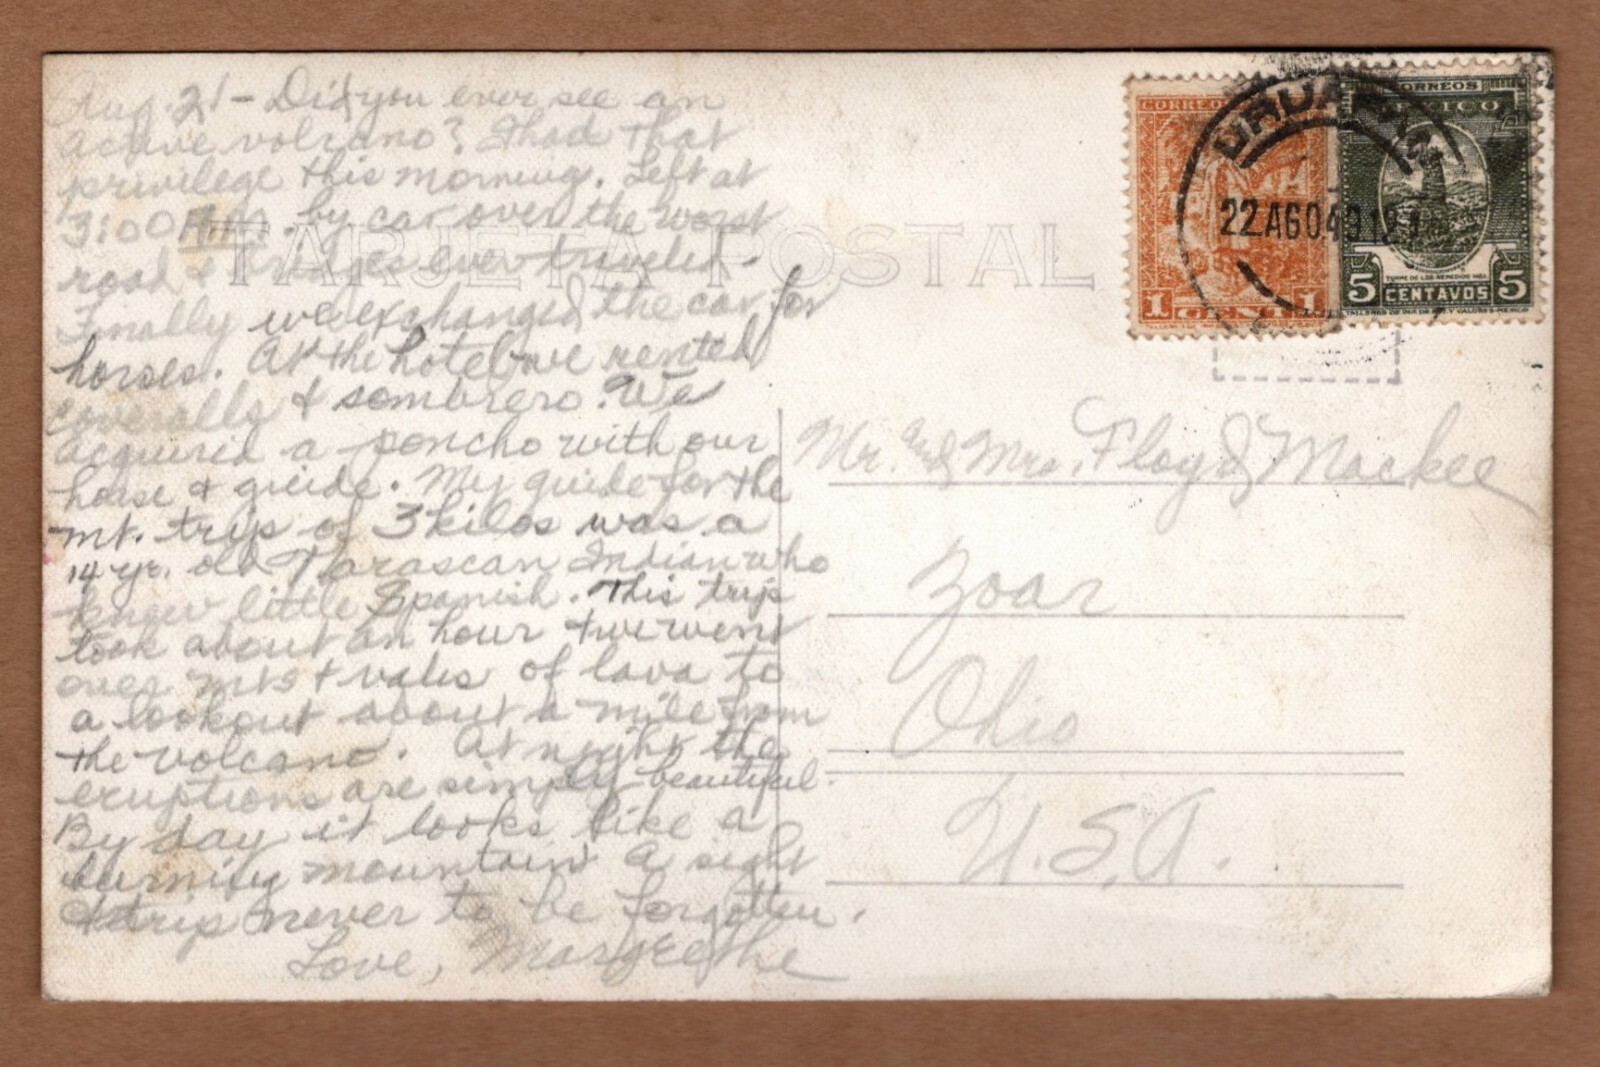 Aug. 21 - Did you ever see an
active volcano? I had that
privilege this morning. Left at
3:00 A.M. by car over the worst
road & bridges ever traveled.
Finally we exchanged the car for
horses. At the hotel we rented
coveralls & sombrero. We
acquired a poncho with our
horse & guide. My guide for the
mt. trip of 3 kilos was a
14 yr. old Tarascan Indian who
knew little Spanish. This trip
took about an hour & we went
over mts & vales of lava to
a lookout about a mile from
the volcano. At night the
eruptions are simply beautiful.
By day it looks like a
burning mountain. A sight
& trip never to be forgotten.
Love, Margrethe
TARJETA POSTAL
CORREOS
1 CENT. 1
CORREOS
MEXICO
TORRE DE LOS REMEDIOS MEX.
5 CENTAVOS 5
URUAPAN
22 AGO 43
Mr. and Mrs. Floyd Mackee
Zoar
Ohio
U.S.A.